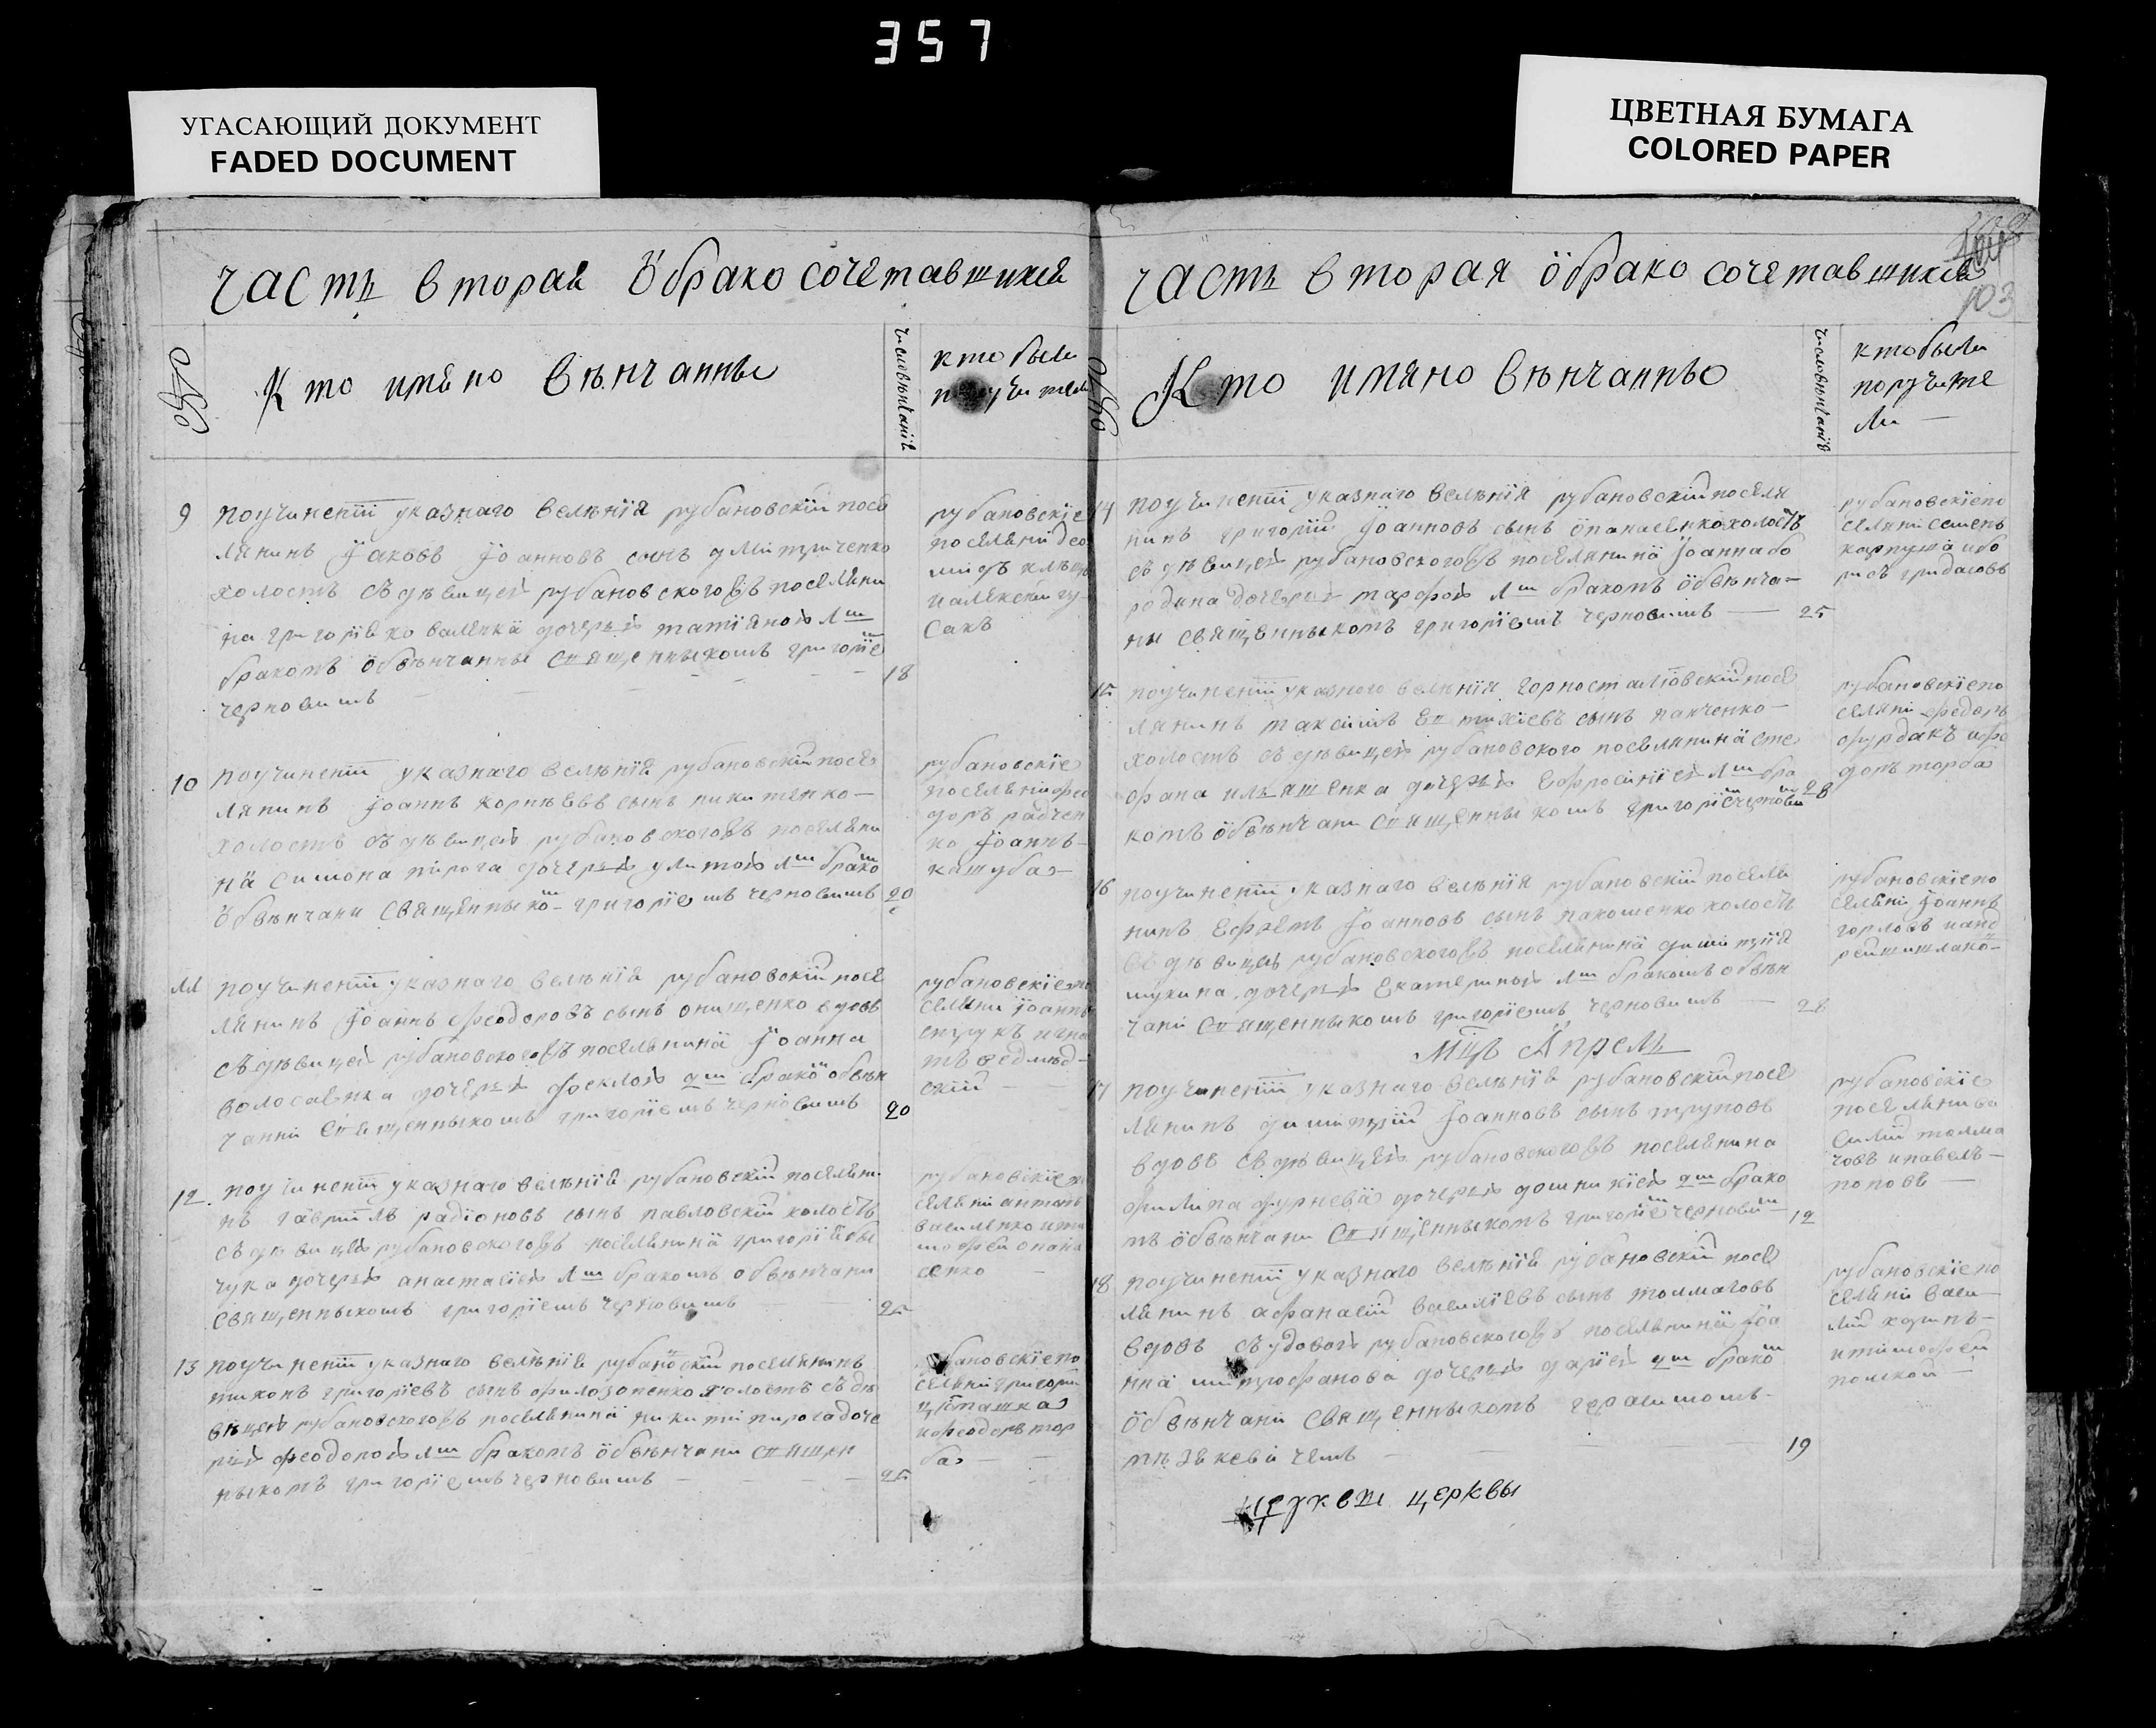 357
УГАСАЮЩИЙ ДОКУМЕНТ
FADED DOCUMENT
ЦВЕТНАЯ БУМАГА
COLORED PAPER
часть вторая о брако сочетавшихся
Кто имяно венчанны
число венчания
кто были
поручители
9 По учинении указнаго веленія рубановскій посе
лянинъ Іаковъ Іоанновъ сынъ дмитриченко
холостъ съ девицею рубановскогожъ поселяни
на григорія коваленка дочерью татіяною 1м
бракомъ обвенчанны священникомъ григоріе
черновимъ 18
рубановскіе
поселяни
и алексей гу
сакъ
10 По учинении указнаго веленія рубановскій посе
лянинъ Іоаннъ корнеевъ сынъ никитенко
холостъ съ девицею рубановскогожъ поселяни
на симона пирога дочерью улитою 1м брако
обвенчани священнико григоріемъ черновимъ 20
рубановскіе
поселяни фео
доръ радчен
ко Іоаннъ
кашуба
11 По учинении указнаго веленія рубановскій посе
лянинъ Іоаннъ феодоровъ сынъ онищенко вдовъ
съ девицею рубановскогожъ поселянина Іоанна
волосаенка дочерью феклою 2м брако обвен
чанни священникомъ григоріемъ черновимъ 20
рубановскіе по
селяни Іоаннъ
12. По учинении указнаго веленія рубановскій поселяни
нъ гавриилъ радіоновъ сынъ павловскій холостъ
съ девицею рубановскогожъ поселянина григорія бы
чука дочерью анастасіею 1м бракомъ обвенчани
священникомъ григоріемъ черновимъ 25
рубановскіе по
селяни антонъ
василенко и ти
мофей опана
сенко
13 По учинении указнаго веленія рубановскій поселянинъ
тихонъ григоріевъ сынъ филозопенко холостъ съ де
вицею рубановскогожъ поселянина никити пирога доче
рью феодорою 1м бракомъ обвенчани священ
никомъ григоріемъ черновимъ 25
рубановскіе по
селяни григори
и феодоръ тор
ба
часть вторая о брако сочетавшихся
103
Кто имяно венчанны
число венчания
кто были
поручите
ли
14 По учинении указнаго веленія рубановскій поселя
нинъ григорій Іоанновъ сынъ опанасенко холостъ
съ девицею рубановскогожъ поселянина Іоанна бо
родина дочерью марфою 1м бракомъ обвенча
ны священникомъ григоріемъ черновимъ 25
рубановскіе по
селяни семенъ
и бо
рисъ гридасовъ
15 По учинении указнаго веленія горностаіовскій посе
лянинъ максимъ евтихіевъ сынъ панченко
холостъ съ девицею рубановского поселянина сте
фана ильяшенка дочерью ефросиніею 1м бра
комъ обвенчани священникомъ григоріе чернови 28
рубановскіе по
селяни федоръ
фурдакъ и фе
доръ торба
16 По учинении указнаго веленія рубановскій поселя
нинъ ефремъ Іоанновъ сынъ пакошенко холостъ
съ девицею рубановскогожъ поселянина димитрія
щукина дочерью екатериною 1м бракомъ обвен
чани священникомъ григоріемъ черновимъ 28
рубановскіе по
селяни Іоаннъ
горловъ и анд
рей шишлако
мцъ Апрель
17 По учинении указнаго веленія рубановскій посе
лянинъ димитрій Іоанновъ сынъ труновъ
вдовъ съ девицею рубановскогожъ поселянина
филипа фурнева дочерью домникіею 2м брако
мъ обвенчани священникомъ григоріе чернови 12
рубановскіе
поселяни ва
силій толма
човъ и павелъ
поповъ
18 По учинении указнаго веленія рубановскій посе
лянинъ афанасій василіевъ сынъ толмаговъ
вдовъ съ удовою рубановскогожъ поселянина Іоа
нна митрофанова дочерью даріею 2м брако
обвенчани священникомъ герасимомъ
19
рубановскіе по
селяни васи
лій
и тимофей
церквы